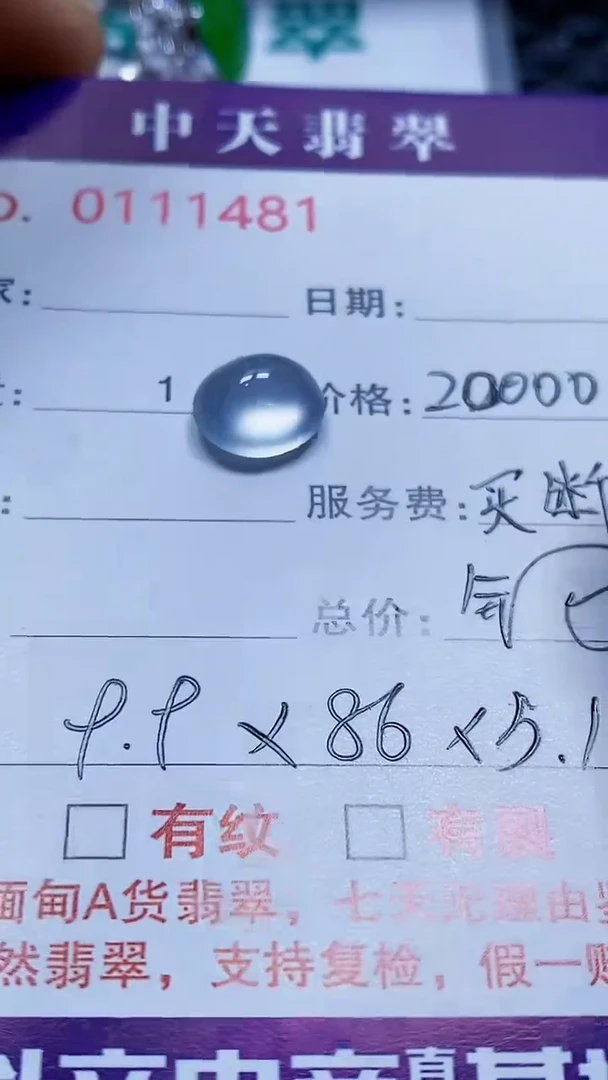 翠
中天翡翠
0111481
家：
日期：
1
价格：20000
服务费：买断
总价：
9.9 × 86 × 5.1
有纹
有裂
缅甸A货翡翠，七天无理由
然翡翠，支持复检，假一赔